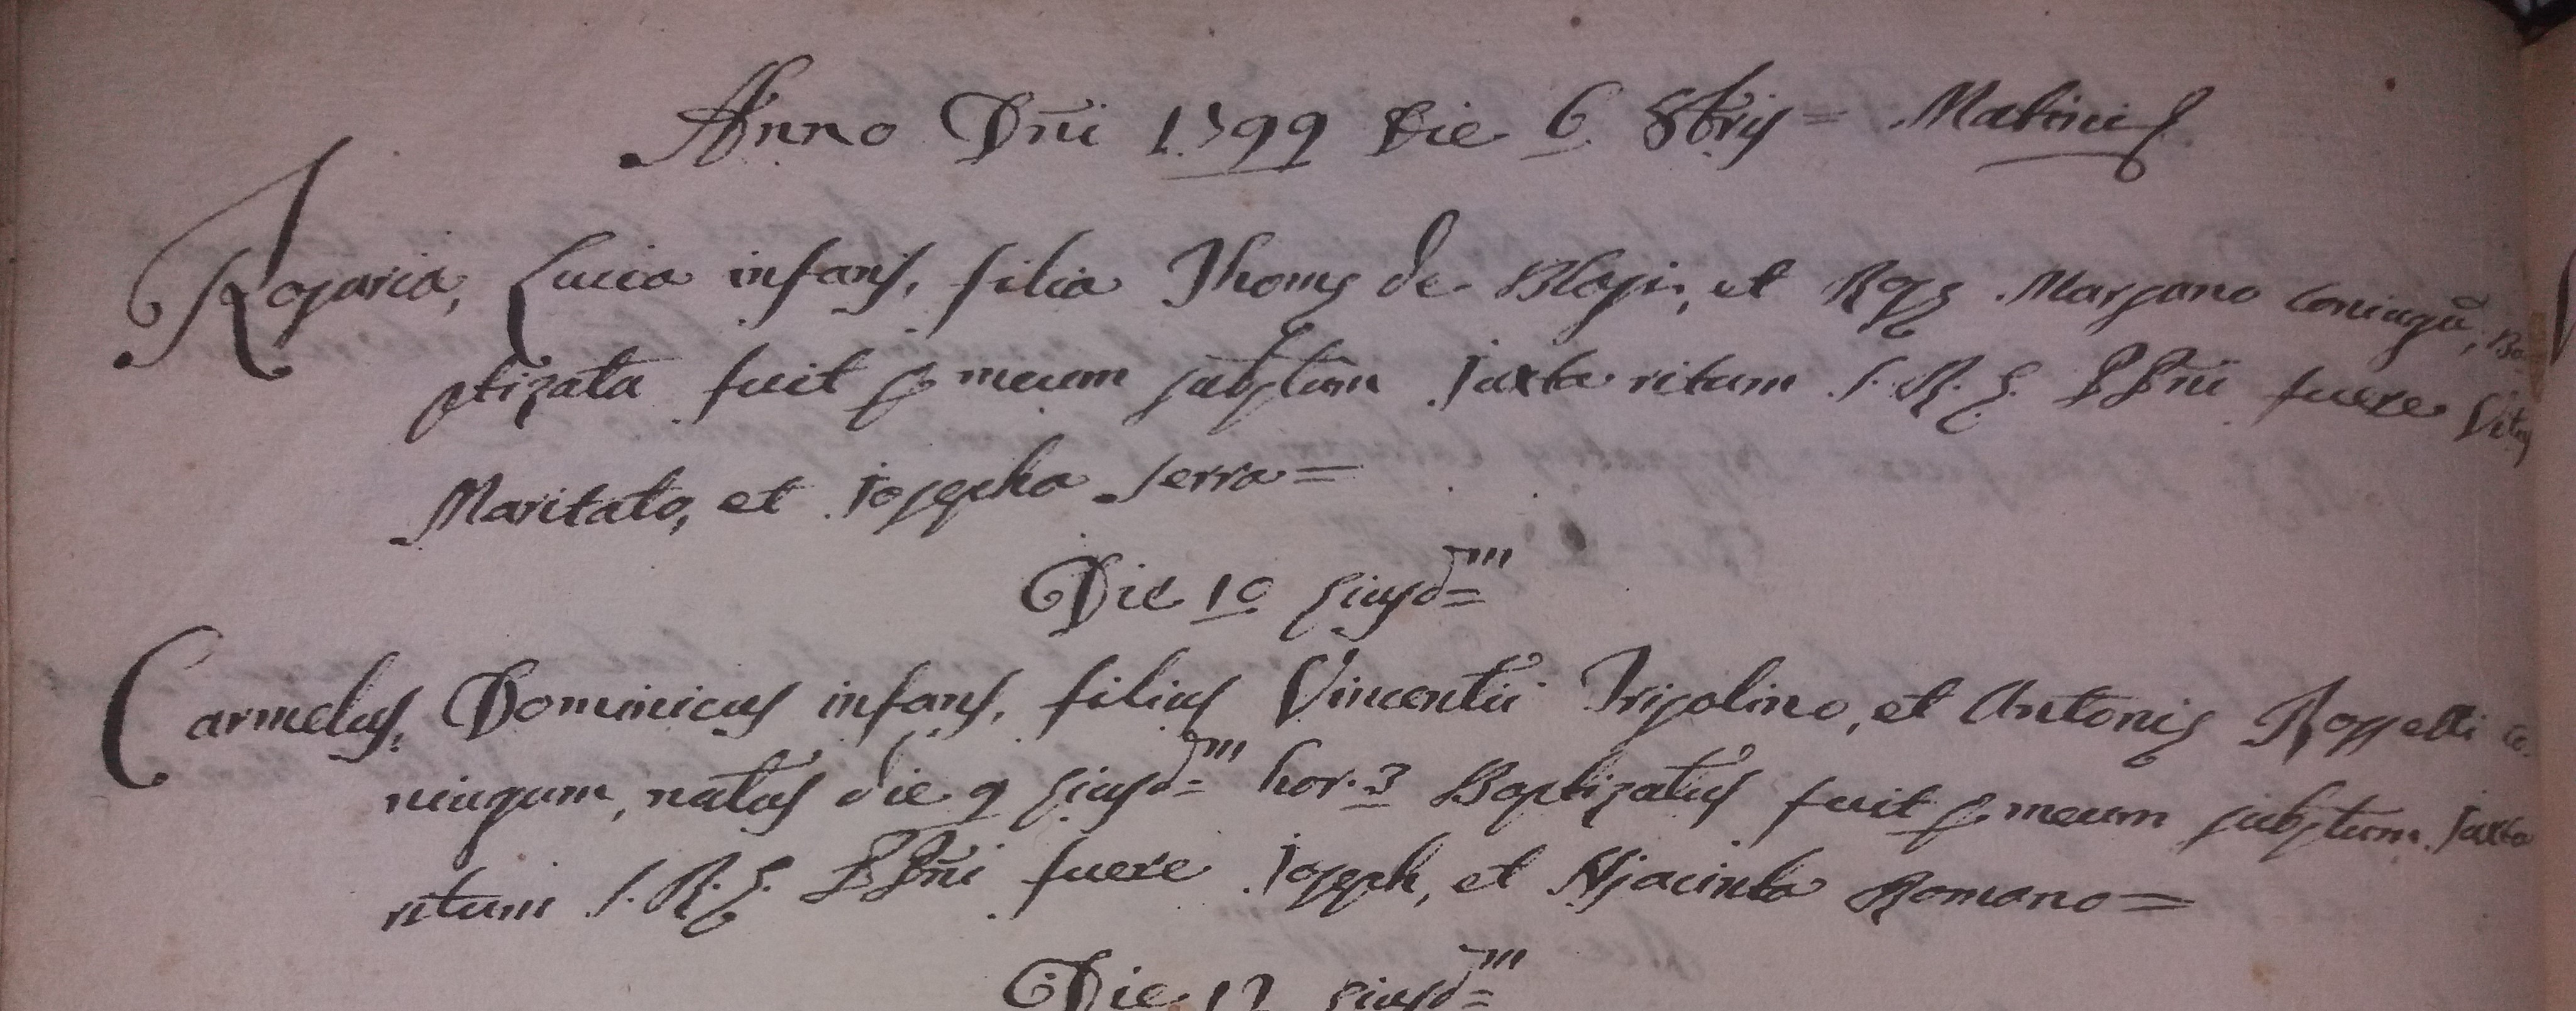 Anno Dñi 1799 Die 6 8bris = Matinij
Rosaria, Lucia infans, filia Thomę de Blasi, et Rosę Marsano coniugũ, Ba-
ptizata fuit p meum subptum juxta ritum S. R. E. PPñi fuere Vitus
Maritato, et Josepha Serra =
Die 10 ejusdem =
Carmelus, Dominicus infans, filius Vincentii Trisolino, et Antonię Rosselli co-
niugum, natus die 9 ejusdem hor. 3 Baptizatus fuit p meum subptum juxta
ritum S. R. E. PPñi fuere Joseph, et Hjacinta Romano =
Die 12 ejusdem =